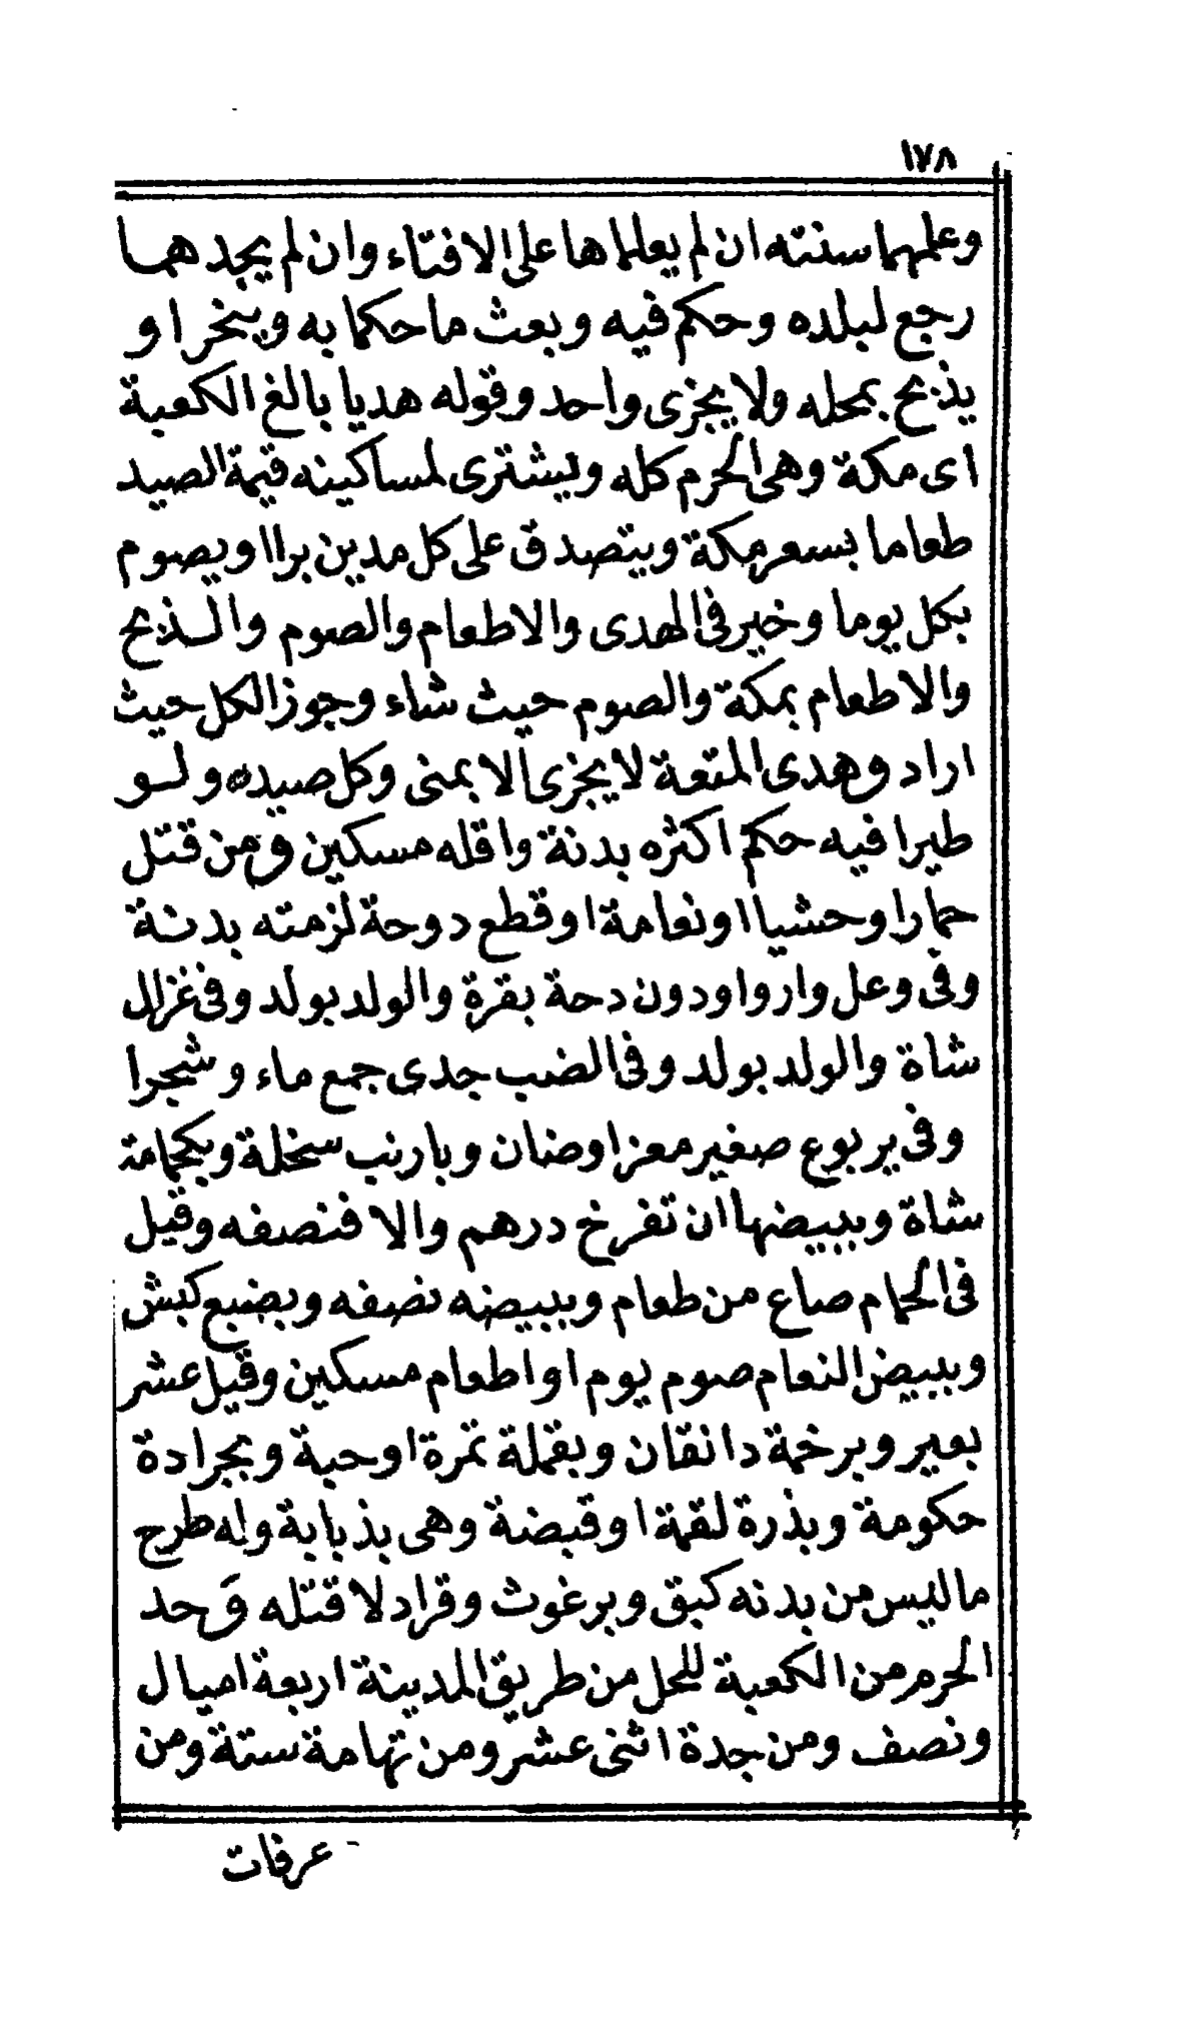 ١٧٨
وعلمهما سنته ان لم يعلماها على الافتاء وان لم يجد هما
رجع لبلده وحكم فيه وبعث ما حكما به وينخر او
يذبح بمحله ولا يجزى واحد وقوله هديا بالغ الكعبة
اى مكة وهى الحرم كله ويشترى لمساكينه قيمة الصيد
طعاما بسعر مكة ويتصدق على كل مدين برا اويصوم
بكل يوما وخير فى الهدى والاطعام والصوم والـذبح
والاطعام بمكة والصوم حيث شاء وجوز الكل حيث
اراد وهدى المتعة لا يجزى الا بمنى وكل صيده ولـو
طيرا فيه حكم اكثره بدنة واقله مسكين ومن قتل
حمارا وحشيا اونعامة اوقطع دوحة لزمته بدنة
وفى وعل واروا ودون دحة بقرة والولد بولد وفى غزال
شاة والولد بولد وفى الضب جدى جمع ماء وشجرا
وفى يربوع صغير معز اوضان وبارنب سخلة وبكحمامة
شاة وببيضها ان تفرخ درهم والا فنصفه وقيل
فى الحمام صاع من طعام وببيضه نصفه وبضبع كبش
وببيض النعام صوم يوم او اطعام مسكين وقيل عشر
بعير وبرخمة دانقان وبقملة تمرة اوحبة وبجرادة
حكومة وبذرة لقمة اوقبضة وهى بذبابة وله طرح
ما ليس من بدنه كبق وبرغوث وقراد لا قتله وَحد
الحرم من الكعبة للحل من طريق المدينة اربعة اميال
ونصف ومن جدة اثنى عشر ومن تهامة ستة ومن
عرفات